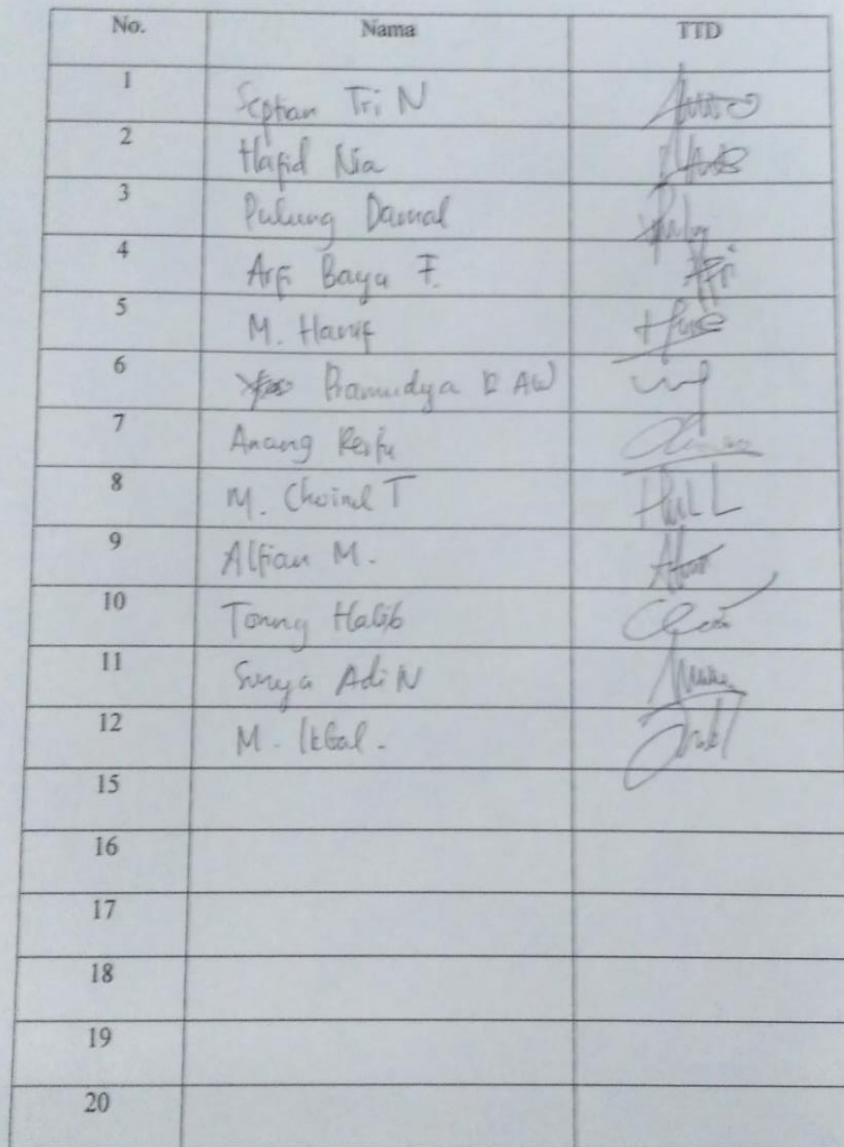 No. Nama TTD
1 Septian Tri N
2 Hafid Nia
3 Pulung Damal
4 Arfi Bayu F.
5 M. Hanif
6 Pramudya R AW
7 Anang
8 M. Choirul T
9 Alfian M.
10 Tonny Habib
11 Surya Adi N
12 M. Ikbal.
15
16
17
18
19
20